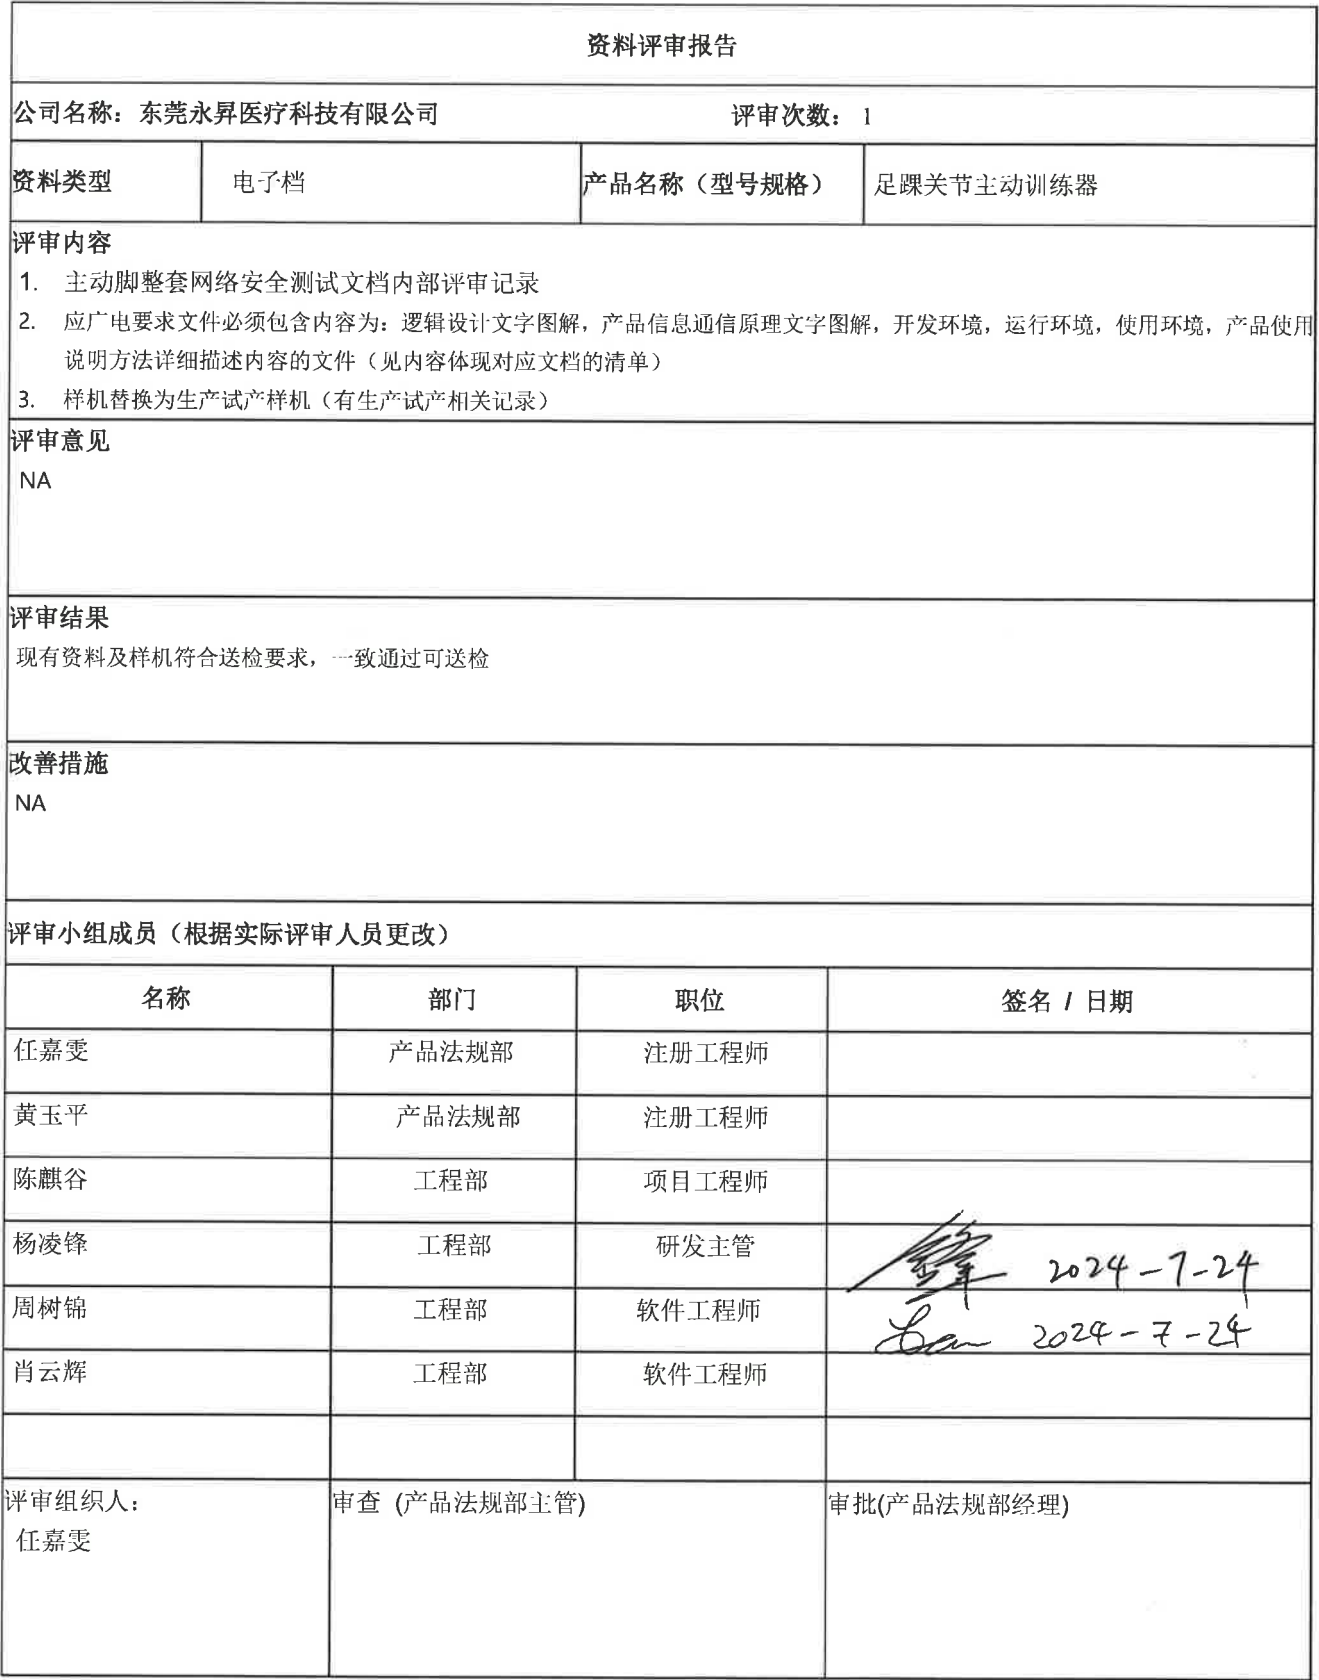 资料评审报告
公司名称：东莞永昇医疗科技有限公司 评审次数：1
资料类型 电子档 产品名称（型号规格） 足踝关节主动训练器
评审内容
1. 主动脚整套网络安全测试文档内部评审记录
2. 应广电要求文件必须包含内容为：逻辑设计文字图解，产品信息通信原理文字图解，开发环境，运行环境，使用环境，产品使用
说明方法详细描述内容的文件（见内容体现对应文档的清单）
3. 样机替换为生产试产样机（有生产试产相关记录）
评审意见
NA
评审结果
现有资料及样机符合送检要求，一致通过可送检
改善措施
NA
评审小组成员（根据实际评审人员更改）
名称 部门 职位 签名 / 日期
任嘉雯 产品法规部 注册工程师
黄玉平 产品法规部 注册工程师
陈麒谷 工程部 项目工程师
杨凌锋 工程部 研发主管 锋 2024-7-24
周树锦 工程部 软件工程师 2024-7-24
肖云辉 工程部 软件工程师
评审组织人： 审查 (产品法规部主管) 审批(产品法规部经理)
任嘉雯